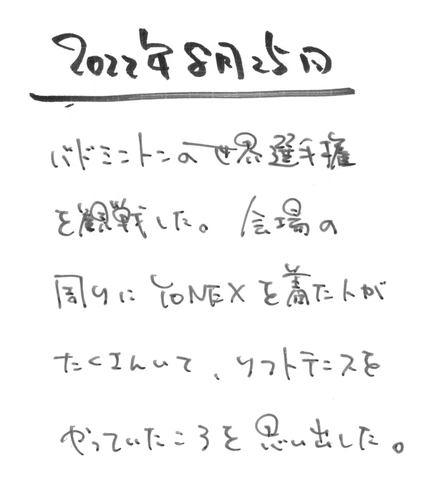 2022年8月25日
バドミントンの世界選手権
を観戦した。会場の
周りにYONEXを着た人が
たくさんいて、ソフトテニスを
やっていたころを思い出した。